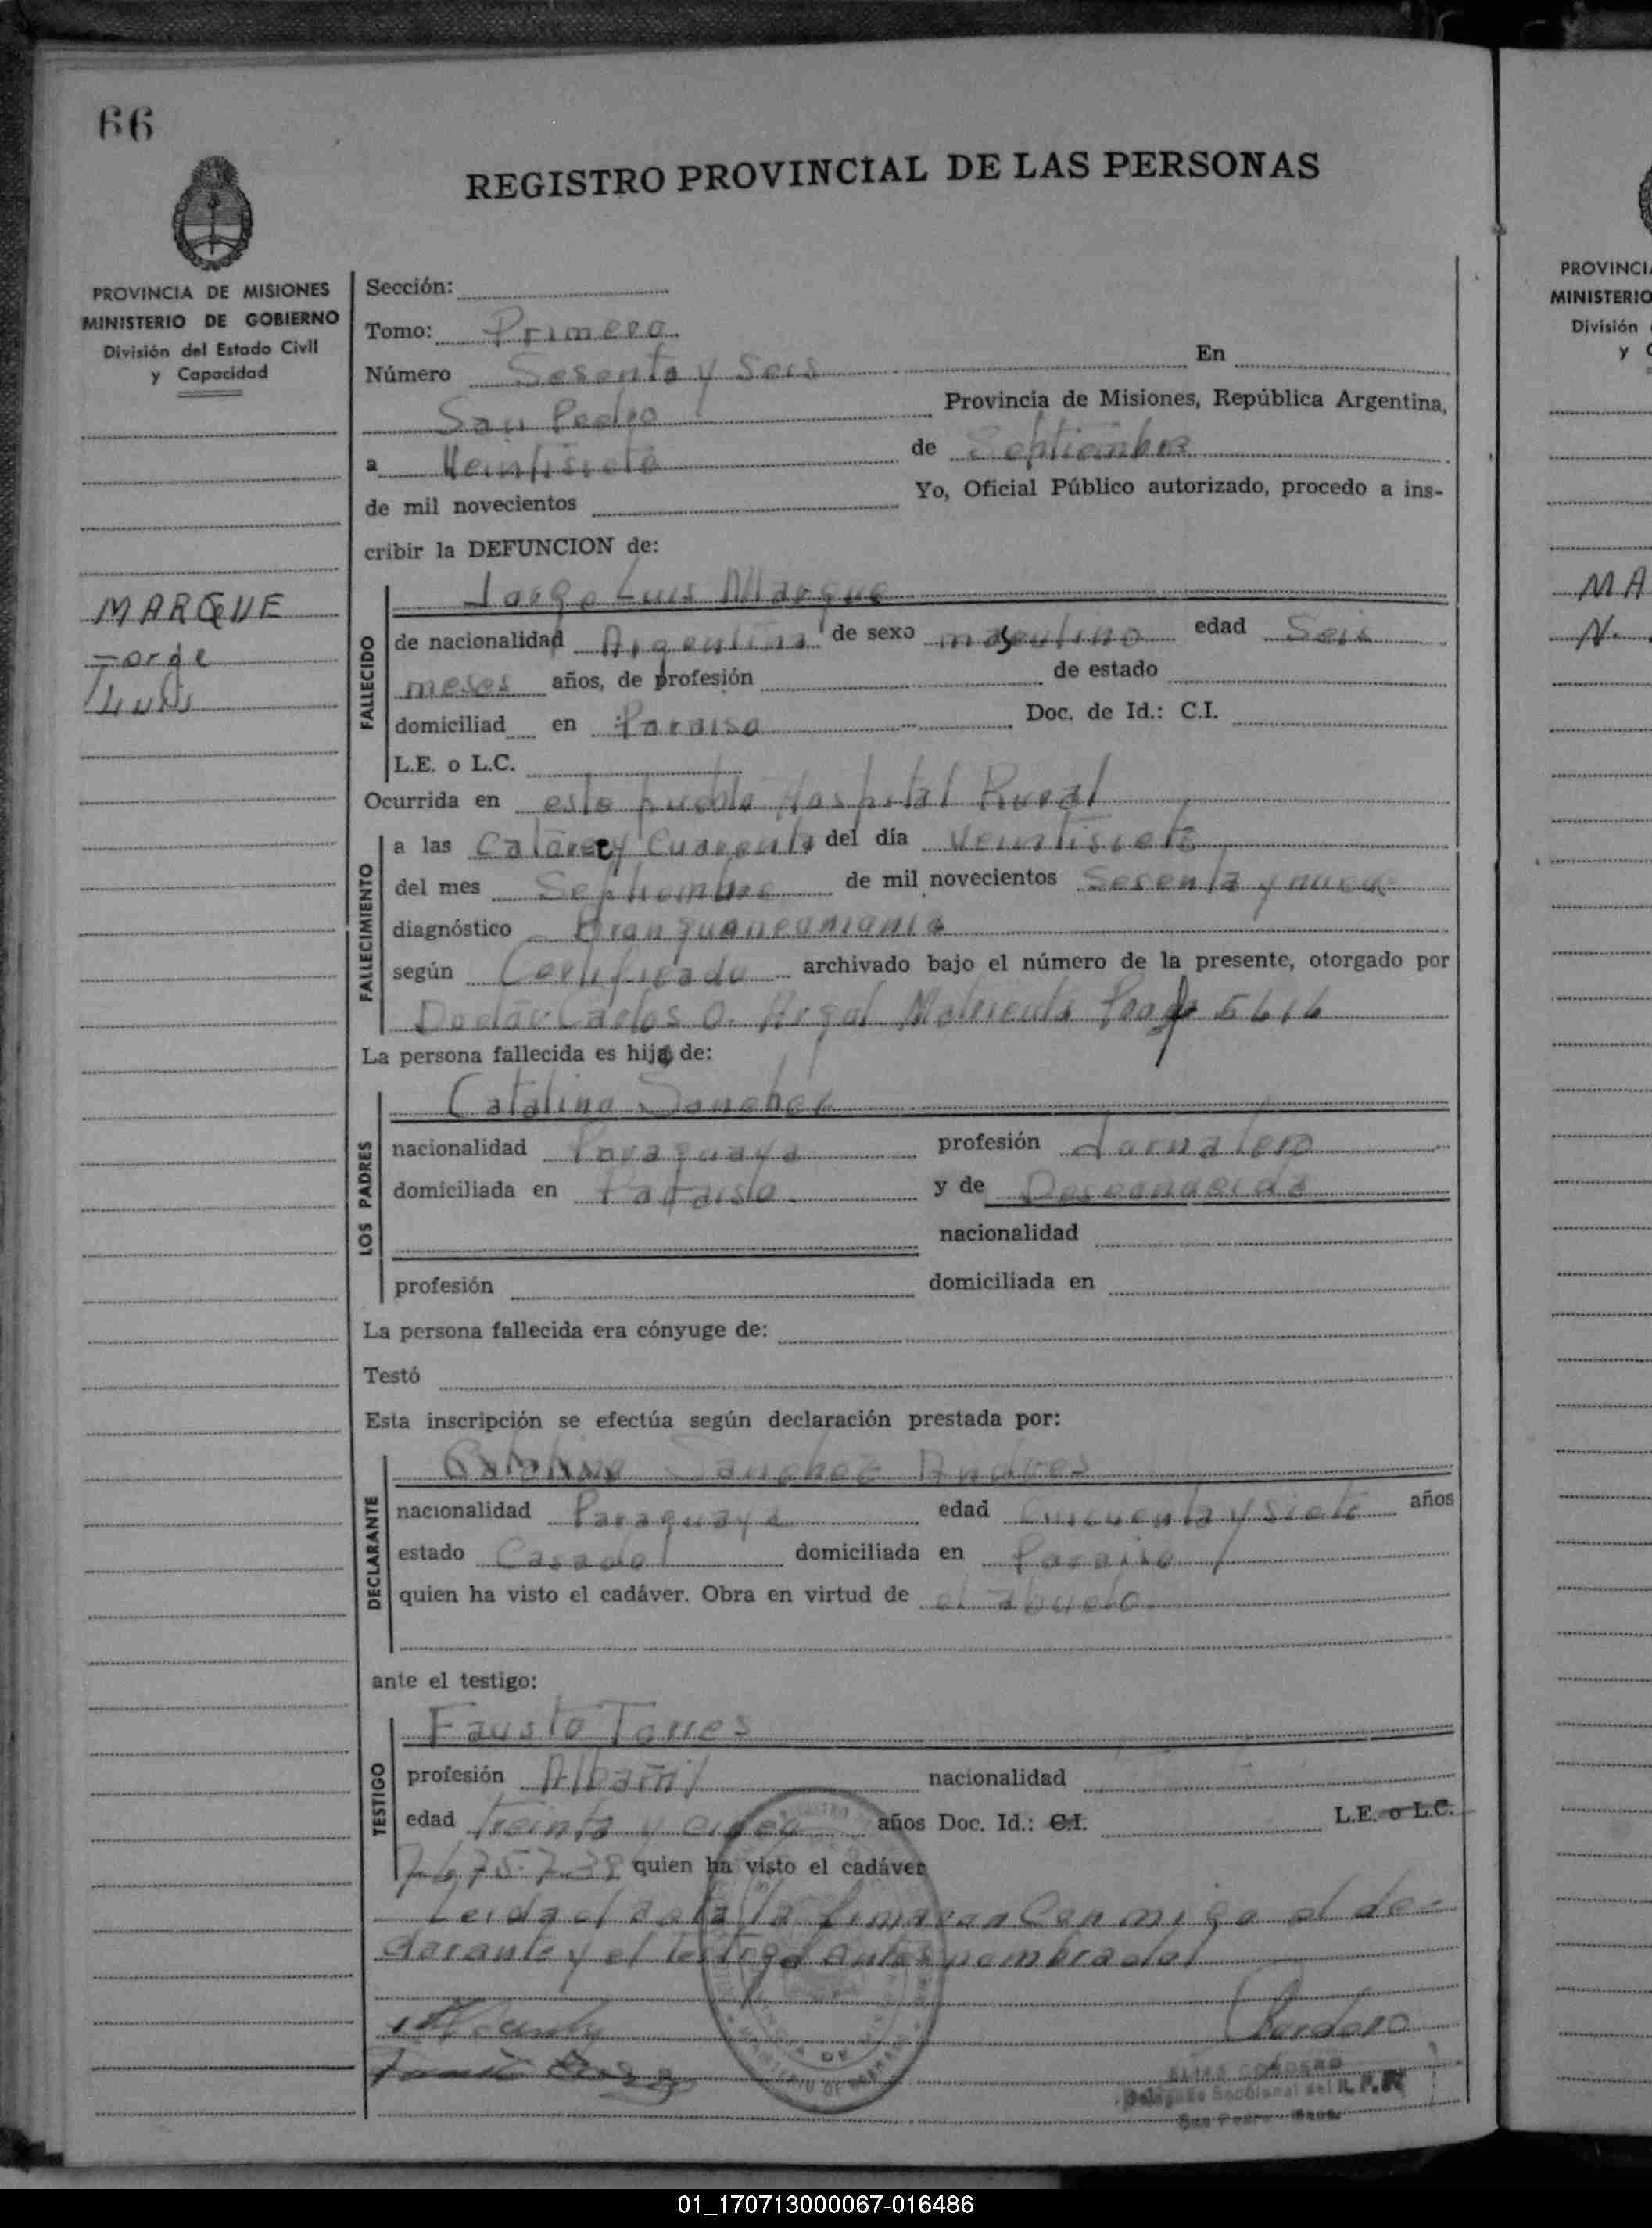 66
REGISTRO PROVINCIAL DE LAS PERSONAS
PROVINCIA DE MISIONES
MINISTERIO DE GOBIERNO
División del Estado Civil
y Capacidad
MARQUE
Jorge
Luis
Sección:
Tomo: Primero
Número Sesenta y Seis En
San Pedro Provincia de Misiones, República Argentina,
a Veintisiete de Septiembre
de mil novecientos Yo, Oficial Público autorizado, procedo a ins-
cribir la DEFUNCION de:
Jorge Luis Marque
FALLECIDO
de nacionalidad Argentina de sexo masculino edad Seis
meses años, de profesión de estado
domiciliad en Paraiso Doc. de Id.: C.I.
L.E. o L.C.
Ocurrida en este pueblo Hospital Rural
FALLECIMIENTO
a las Catorce y Cuarenta del día Veintisiete
del mes Septiembre de mil novecientos Sesenta y nueve
diagnóstico
según Certificado archivado bajo el número de la presente, otorgado por
Doctor Carlos O. Matricula 5616
La persona fallecida es hijo de:
LOS PADRES
Catalino Sanchez
nacionalidad Paraguaya profesión Jornalero
domiciliada en Paraiso y de
nacionalidad
profesión domiciliada en
La persona fallecida era cónyuge de:
Testó
Esta inscripción se efectúa según declaración prestada por:
DECLARANTE
Sanchez Andres
nacionalidad Paraguaya edad Cincuenta y siete años
estado Casado domiciliada en Paraiso
quien ha visto el cadáver. Obra en virtud de el abuelo
ante el testigo:
TESTIGO
Fausto Torres
profesión Albañil nacionalidad
edad Treinta y años Doc. Id.: C.I. L.E. o L.C.
7.475.738 quien ha visto el cadáver
Leida el acta la firmaran Conmigo el de-
clarante y el testigo antes nombrado
Cordero
ELIAS CORDERO
Delegado Seccional del R.P.P.
San Pedro - Mnes.
PROVINCI
MINISTERIO
División
y C
MA
N.
01_170713000067-016486